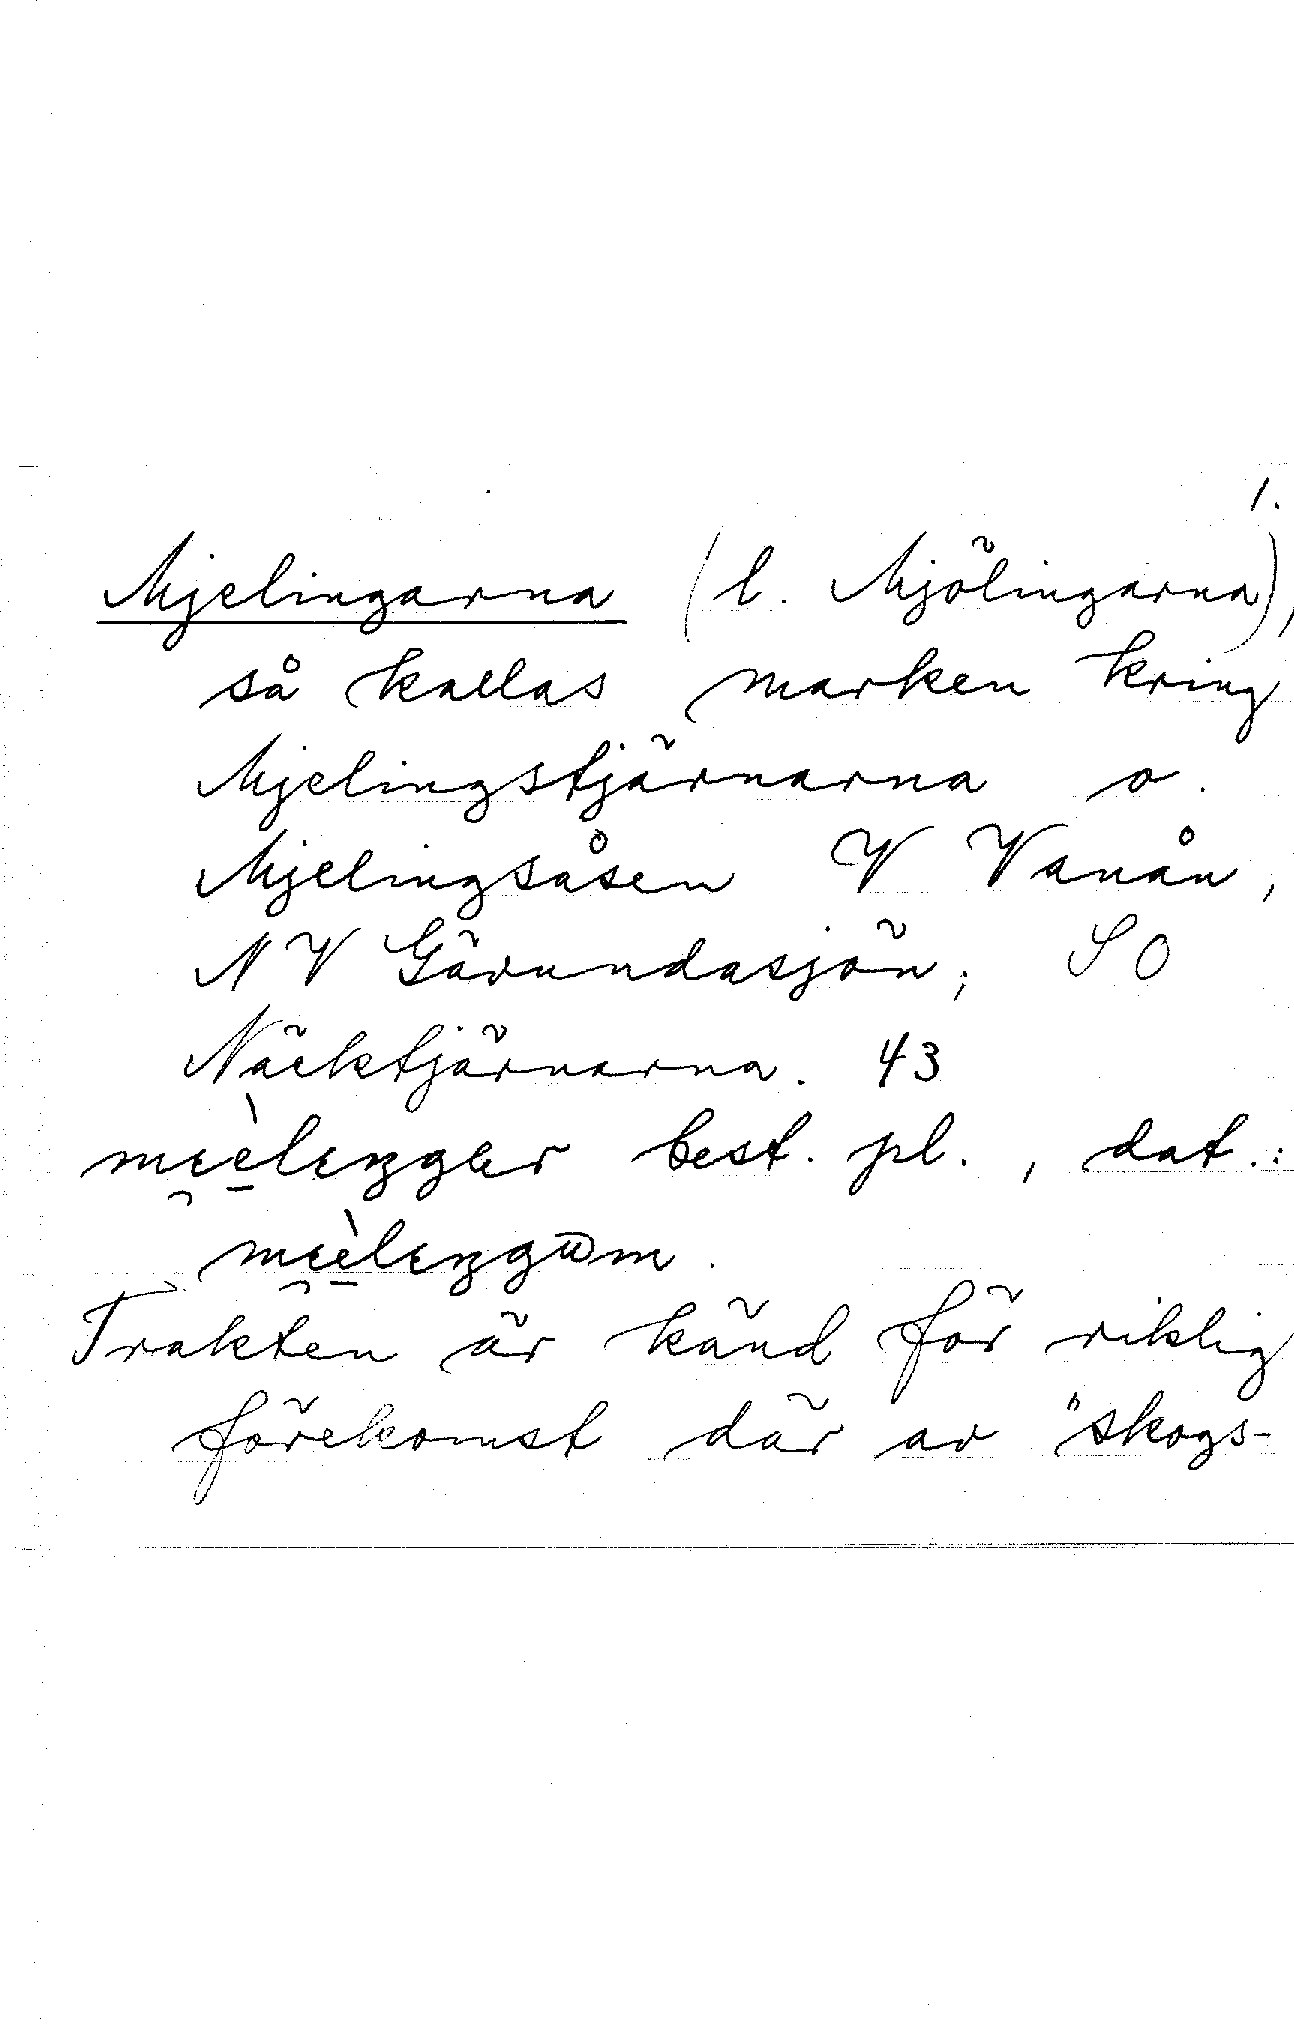 1.
Mjelingarna (l. Mjölingarna),
så kallas marken kring
Mjelingstjärnarna o.
Mjelingsåsen V Vanån,
NV Gärundasjön, SO
Näcktjärnarna. 43
best. pl., dat.:
Trakten är känd för riklig
förekomst där av "skogs-